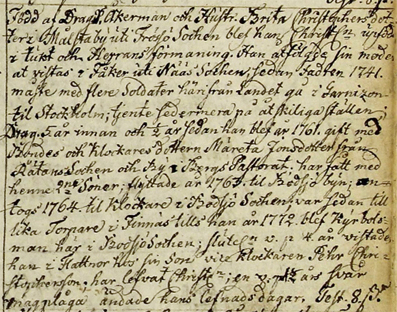 Född af Drag. Åkerman och Hustr. Brita Christophers dot-
ter i Mulstaby uti Frösö Sochen blef han Christ:n upfödd
i tukt och Herrans förmaning. Han åtföljde sin moder
at vistas i Fåker uti Näs Sochen, sedan Fadren 1741
måste med flere Soldater härifrån Landet gå i Garnizon
til Stockholm; tjente sedermera på åtskiliga ställen;
Drag. 5 år innan och 1/2 år sedan han blef år 1761. gift med
Bondes och Klockares dottern Märeta Jonsdotter från
Rätans Sochen och By i Bergs Pastorat. har fått med
henne Söner; flyttade år 1763 til Bodsjö byn; an-
togs 1764 til Klockare i Bodsjö Sochen; var sedan till
lika Torpare i Finnäs tills han år 1772. blef Kyrkobols-
man här i Bodsjö Sochen; slutel: v. p. 4 år vistades
han i Hattnor hos sin Son vice klockaren Pehr Chri-
stophersson; har lefvat Christ:n; en v. svår
magplåga ändade hans lefnadsdagar. Test. 8.